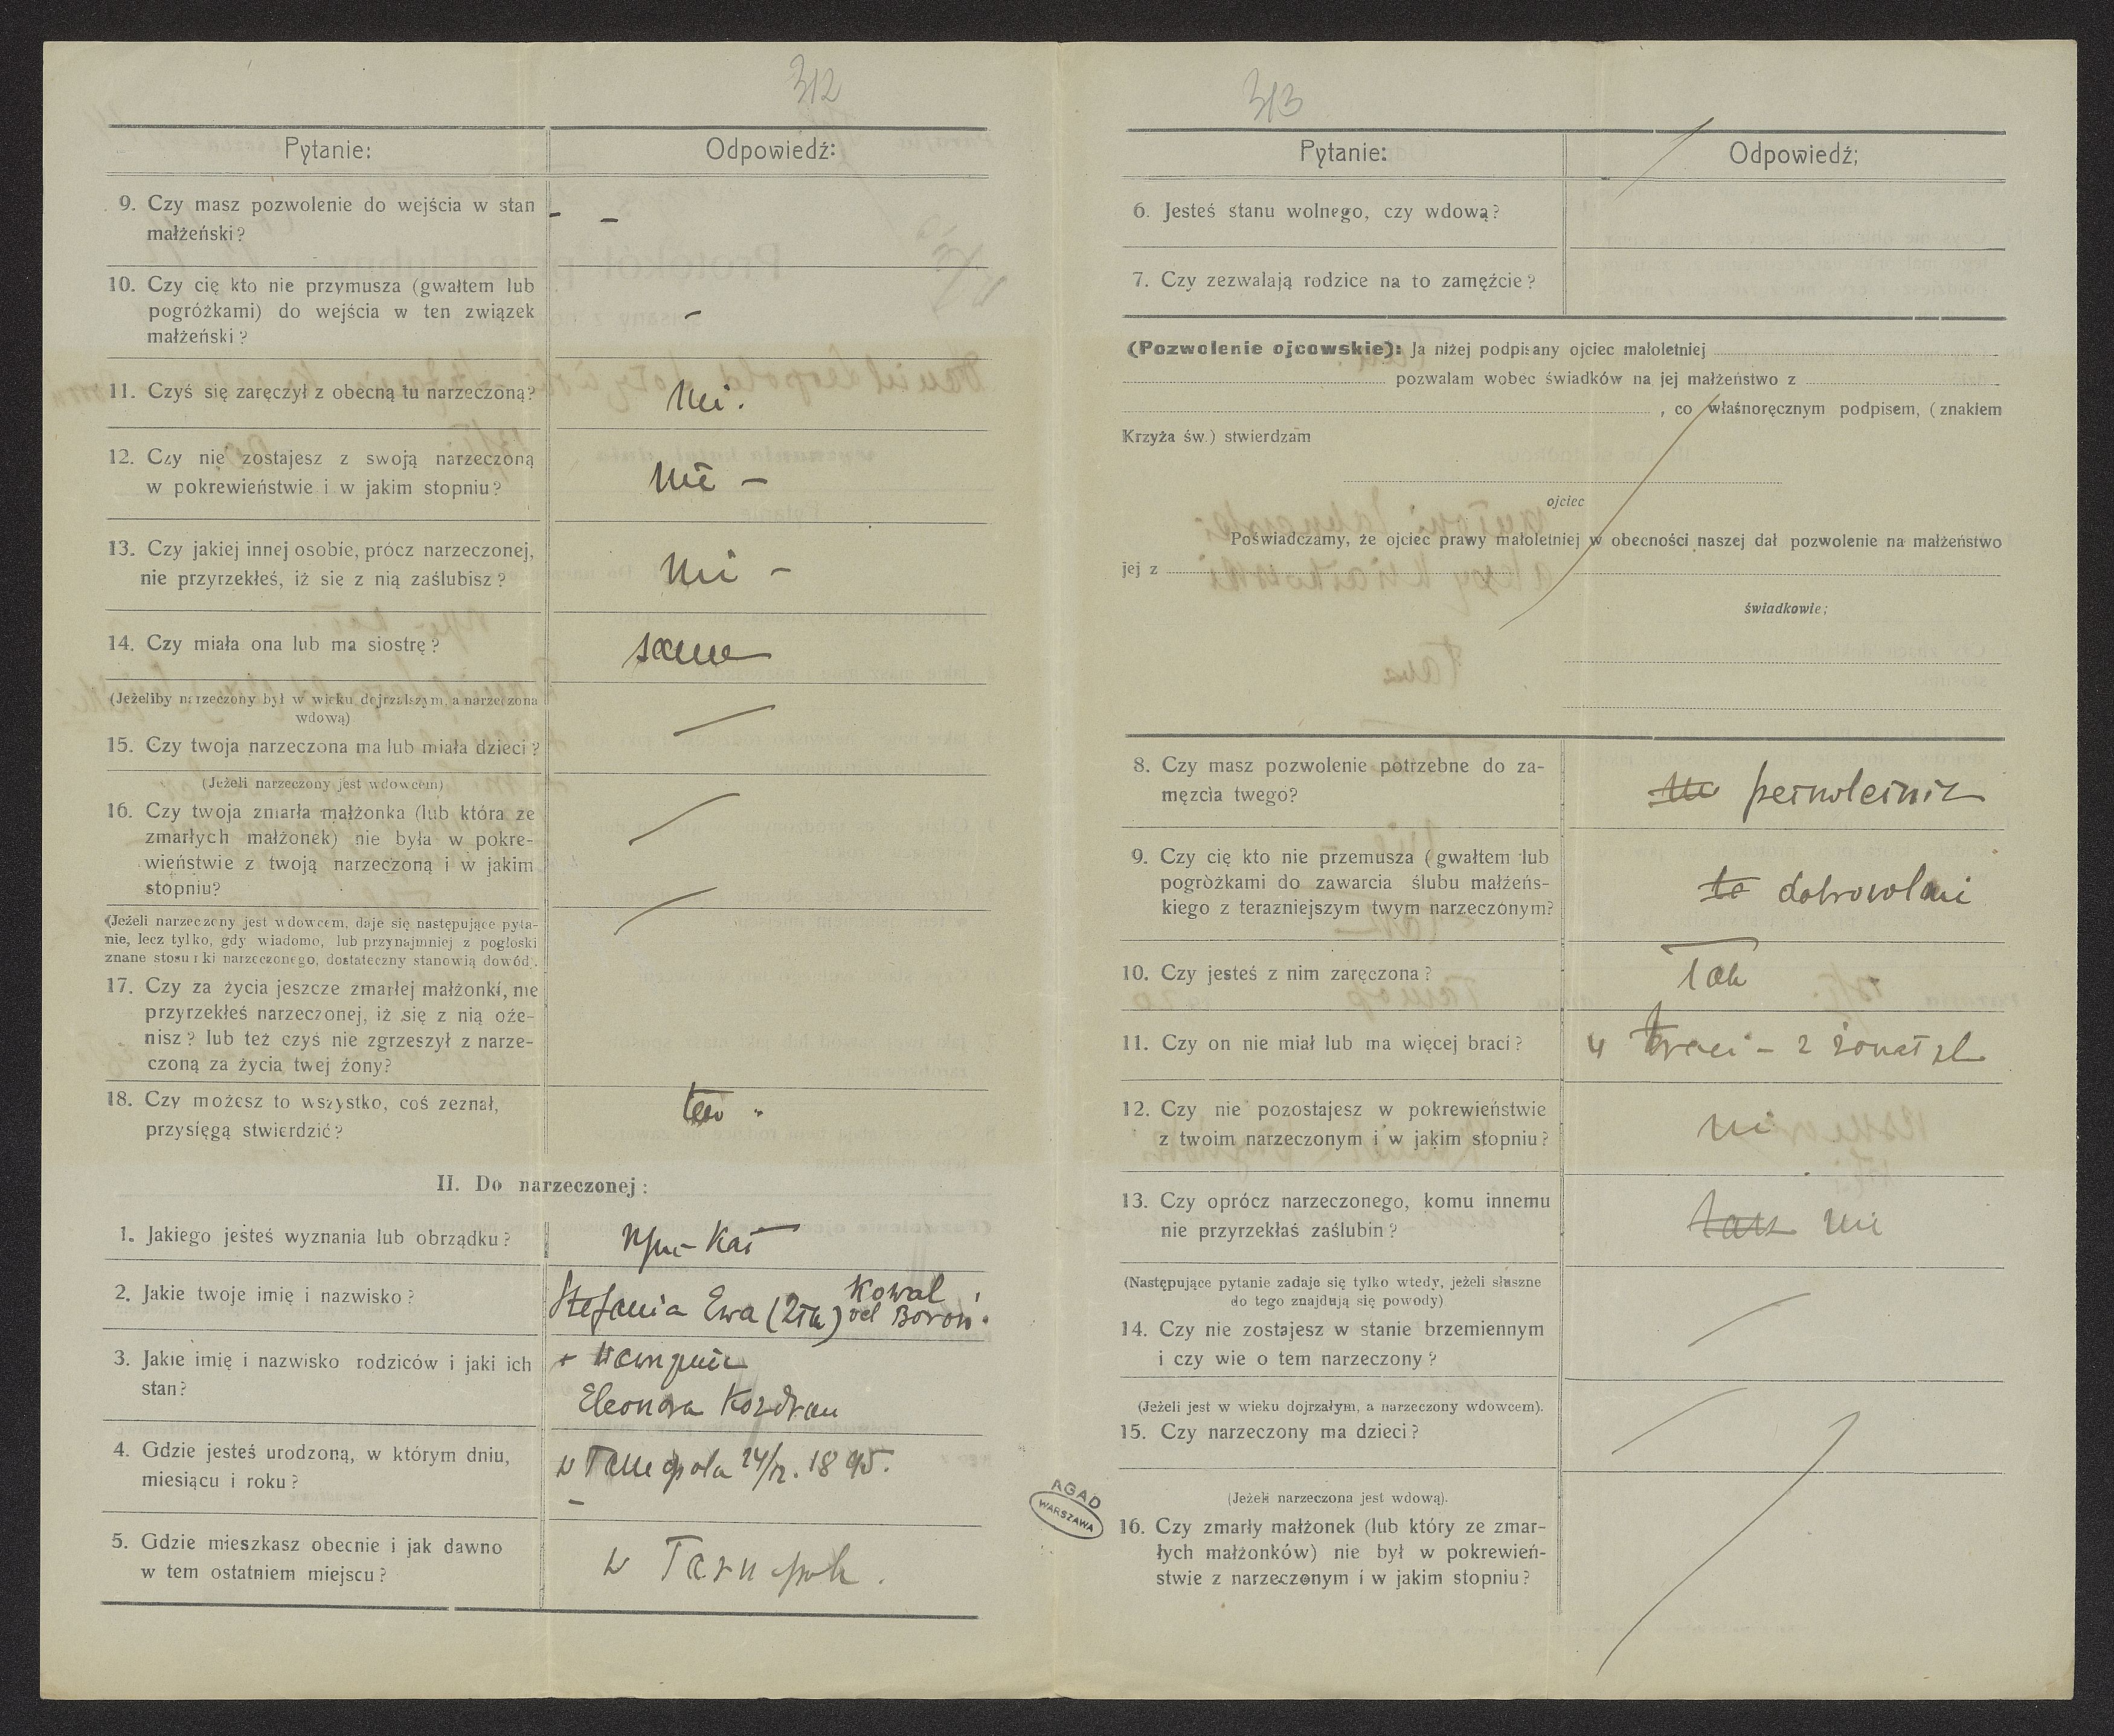 312
Pytanie:
Odpowiedź:
9. Czy masz pozwolenie do wejścia w stan
małżeński?
- -
10. Czy cię kto nie przymusza (gwałtem lub
pogróżkami) do wejścia w ten związek
małżeński?
-
11. Czyś się zaręczył z obecną tu narzeczoną?
nie.
12. Czy nie zostajesz z swoją narzeczoną
w pokrewieństwie i w jakim stopniu?
nie -
13. Czy jakiej innej osobie, prócz narzeczonej,
nie przyrzekłeś, iż sie z nią zaślubisz?
nie -
14. Czy miała ona lub ma siostrę?
sama
(Jeżeliby narzeczony był w wieku dojrzalszym, a narzeczona
wdową)
15. Czy twoja narzeczona ma lub miała dzieci?
(Jeżeli narzeczony jest wdowcem)
16. Czy twoja zmarła małżonka (lub która ze
zmarłych małżonek) nie była w pokre-
wieństwie z twoją narzeczoną i w jakim
stopniu?
(Jeżeli narzeczony jest wdowcem, daje się następujące pyta-
nie, lecz tylko, gdy wiadomo, lub przynajmniej z pogłoski
znane stosunki narzeczonego, dostateczny stanowią dowód).
17. Czy za życia jeszcze zmarłej małżonki, nie
przyrzekłeś narzeczonej, iż się z nią oże-
nisz? lub też czyś nie zgrzeszył z narze-
czoną za życia twej żony?
18. Czy możesz to wszystko, coś zeznał,
przysięgą stwierdzić?
II. Do narzeczonej:
1. Jakiego jesteś wyznania lub obrządku?
2. Jakie twoje imię i nazwisko?
Kowal
Stefania Ewa (2im) vel Borow.
3. Jakie imię i nazwisko rodziców i jaki ich
stan?
+
Eleonora Kozdran
4. Gdzie jesteś urodzoną, w którym dniu,
miesiącu i roku?
w Tarnopolu 24/12. 1895.
5. Gdzie mieszkasz obecnie i jak dawno
w tem ostatniem miejscu?
w Tarnopolu.
313
Pytanie:
Odpowiedź;
6. Jesteś stanu wolnego, czy wdową?
7. Czy zezwalają rodzice na to zamęźcie?
(Pozwolenie ojcowskie): Ja niżej podpisany ojciec małoletniej
pozwalam wobec świadków na jej małżeństwo z
, co właśnoręcznym podpisem, (znakiem
Krzyża św.) stwierdzam
ojciec
Poświadczamy, że ojciec prawy małoletniej w obecności naszej dał pozwolenie na małżeństwo
jej z
świadkowie;
8. Czy masz pozwolenie potrzebne do za-
męzcia twego?
pełnoletnia
9. Czy cię kto nie przemusza (gwałtem lub
pogróżkami do zawarcia ślubu małżeńs-
kiego z terazniejszym twym narzeczonym?
dobrowolnie
10. Czy jesteś z nim zaręczona?
Tak
11. Czy on nie miał lub ma więcej braci?
4 braci - 2 żonatych
12. Czy nie pozostajesz w pokrewieństwie
z twoim narzeczonym i w jakim stopniu?
nie
13. Czy oprócz narzeczonego, komu innemu
nie przyrzekłaś zaślubin?
nie
(Następujące pytanie zadaje się tylko wtedy, jeżeli słuszne
do tego znajdują się powody)
14. Czy nie zostajesz w stanie brzemiennym
i czy wie o tem narzeczony?
(Jeżeli jest w wieku dojrzałym, a narzeczony wdowcem).
15. Czy narzeczony ma dzieci?
(Jeżeli narzeczona jest wdową).
16. Czy zmarły małżonek (lub który ze zmar-
łych małżonków) nie był w pokrewień-
stwie z narzeczonym i w jakim stopniu?
AGAD
WARSZAWA